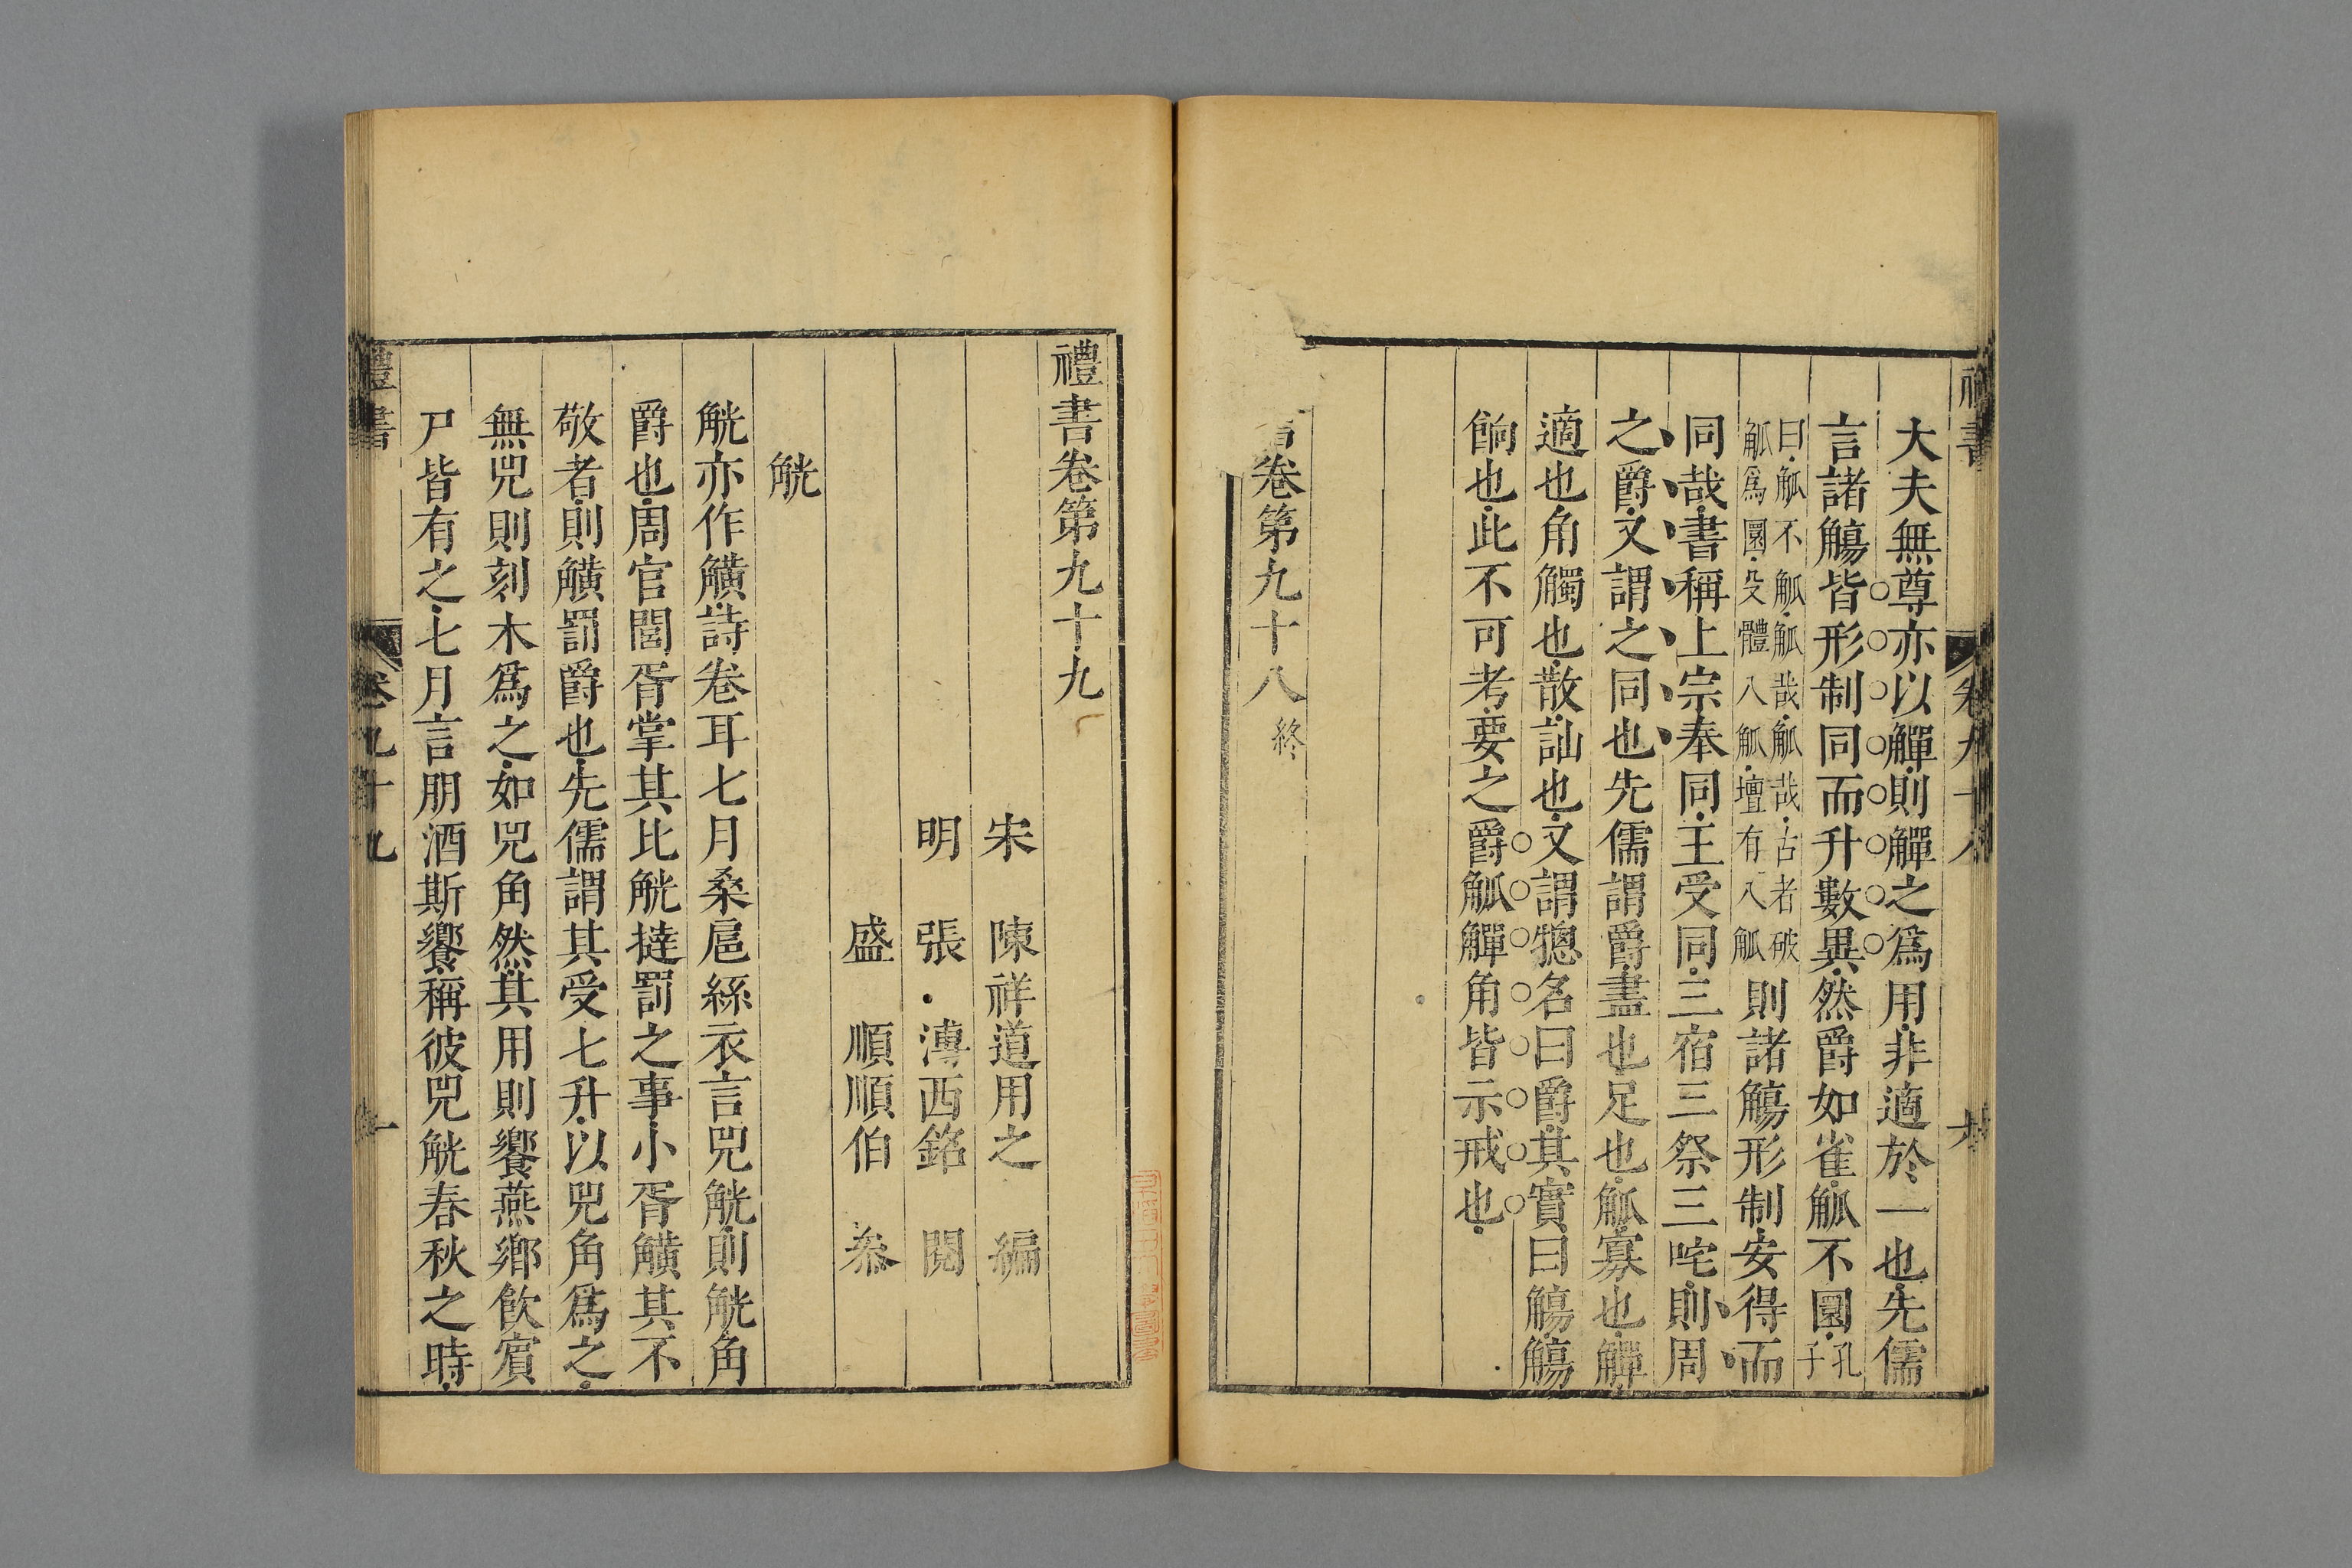 大夫無尊亦以觶則觶之爲用非適於一也先儒
言諸觴皆形制同而升數異然爵如雀觚不圜孔子
曰觚不觚觚哉觚哉古者破
觚爲圜殳體八觚壇有八觚則諸觴形制安得而
同哉書稱上宗奉同王受同三宿三祭三咤則周
之爵又謂之同也先儒謂爵盡也足也觚寡也觶
適也角觸也散訕也又謂總名曰爵其實曰觴觴
餉也此不可考要之爵觚觶角皆示戒也
卷第九十八終
禮書卷第九十九
宋 陳祥道用之 編
明 張溥西銘 閱
盛順順伯 叅
觥
觥亦作觵詩卷耳七月桑扈絲衣言兕觥則觥角
爵也周官閭胥掌其比觥撻罰之事小胥觵其不
敬者則觵罰爵也先儒謂其受七升以兕角爲之
無兕則刻木爲之如兕角然其用則饗燕鄉飮賓
尸皆有之七月言朋酒斯饗稱彼兕觥春秋之時
禮書 卷九十九 一